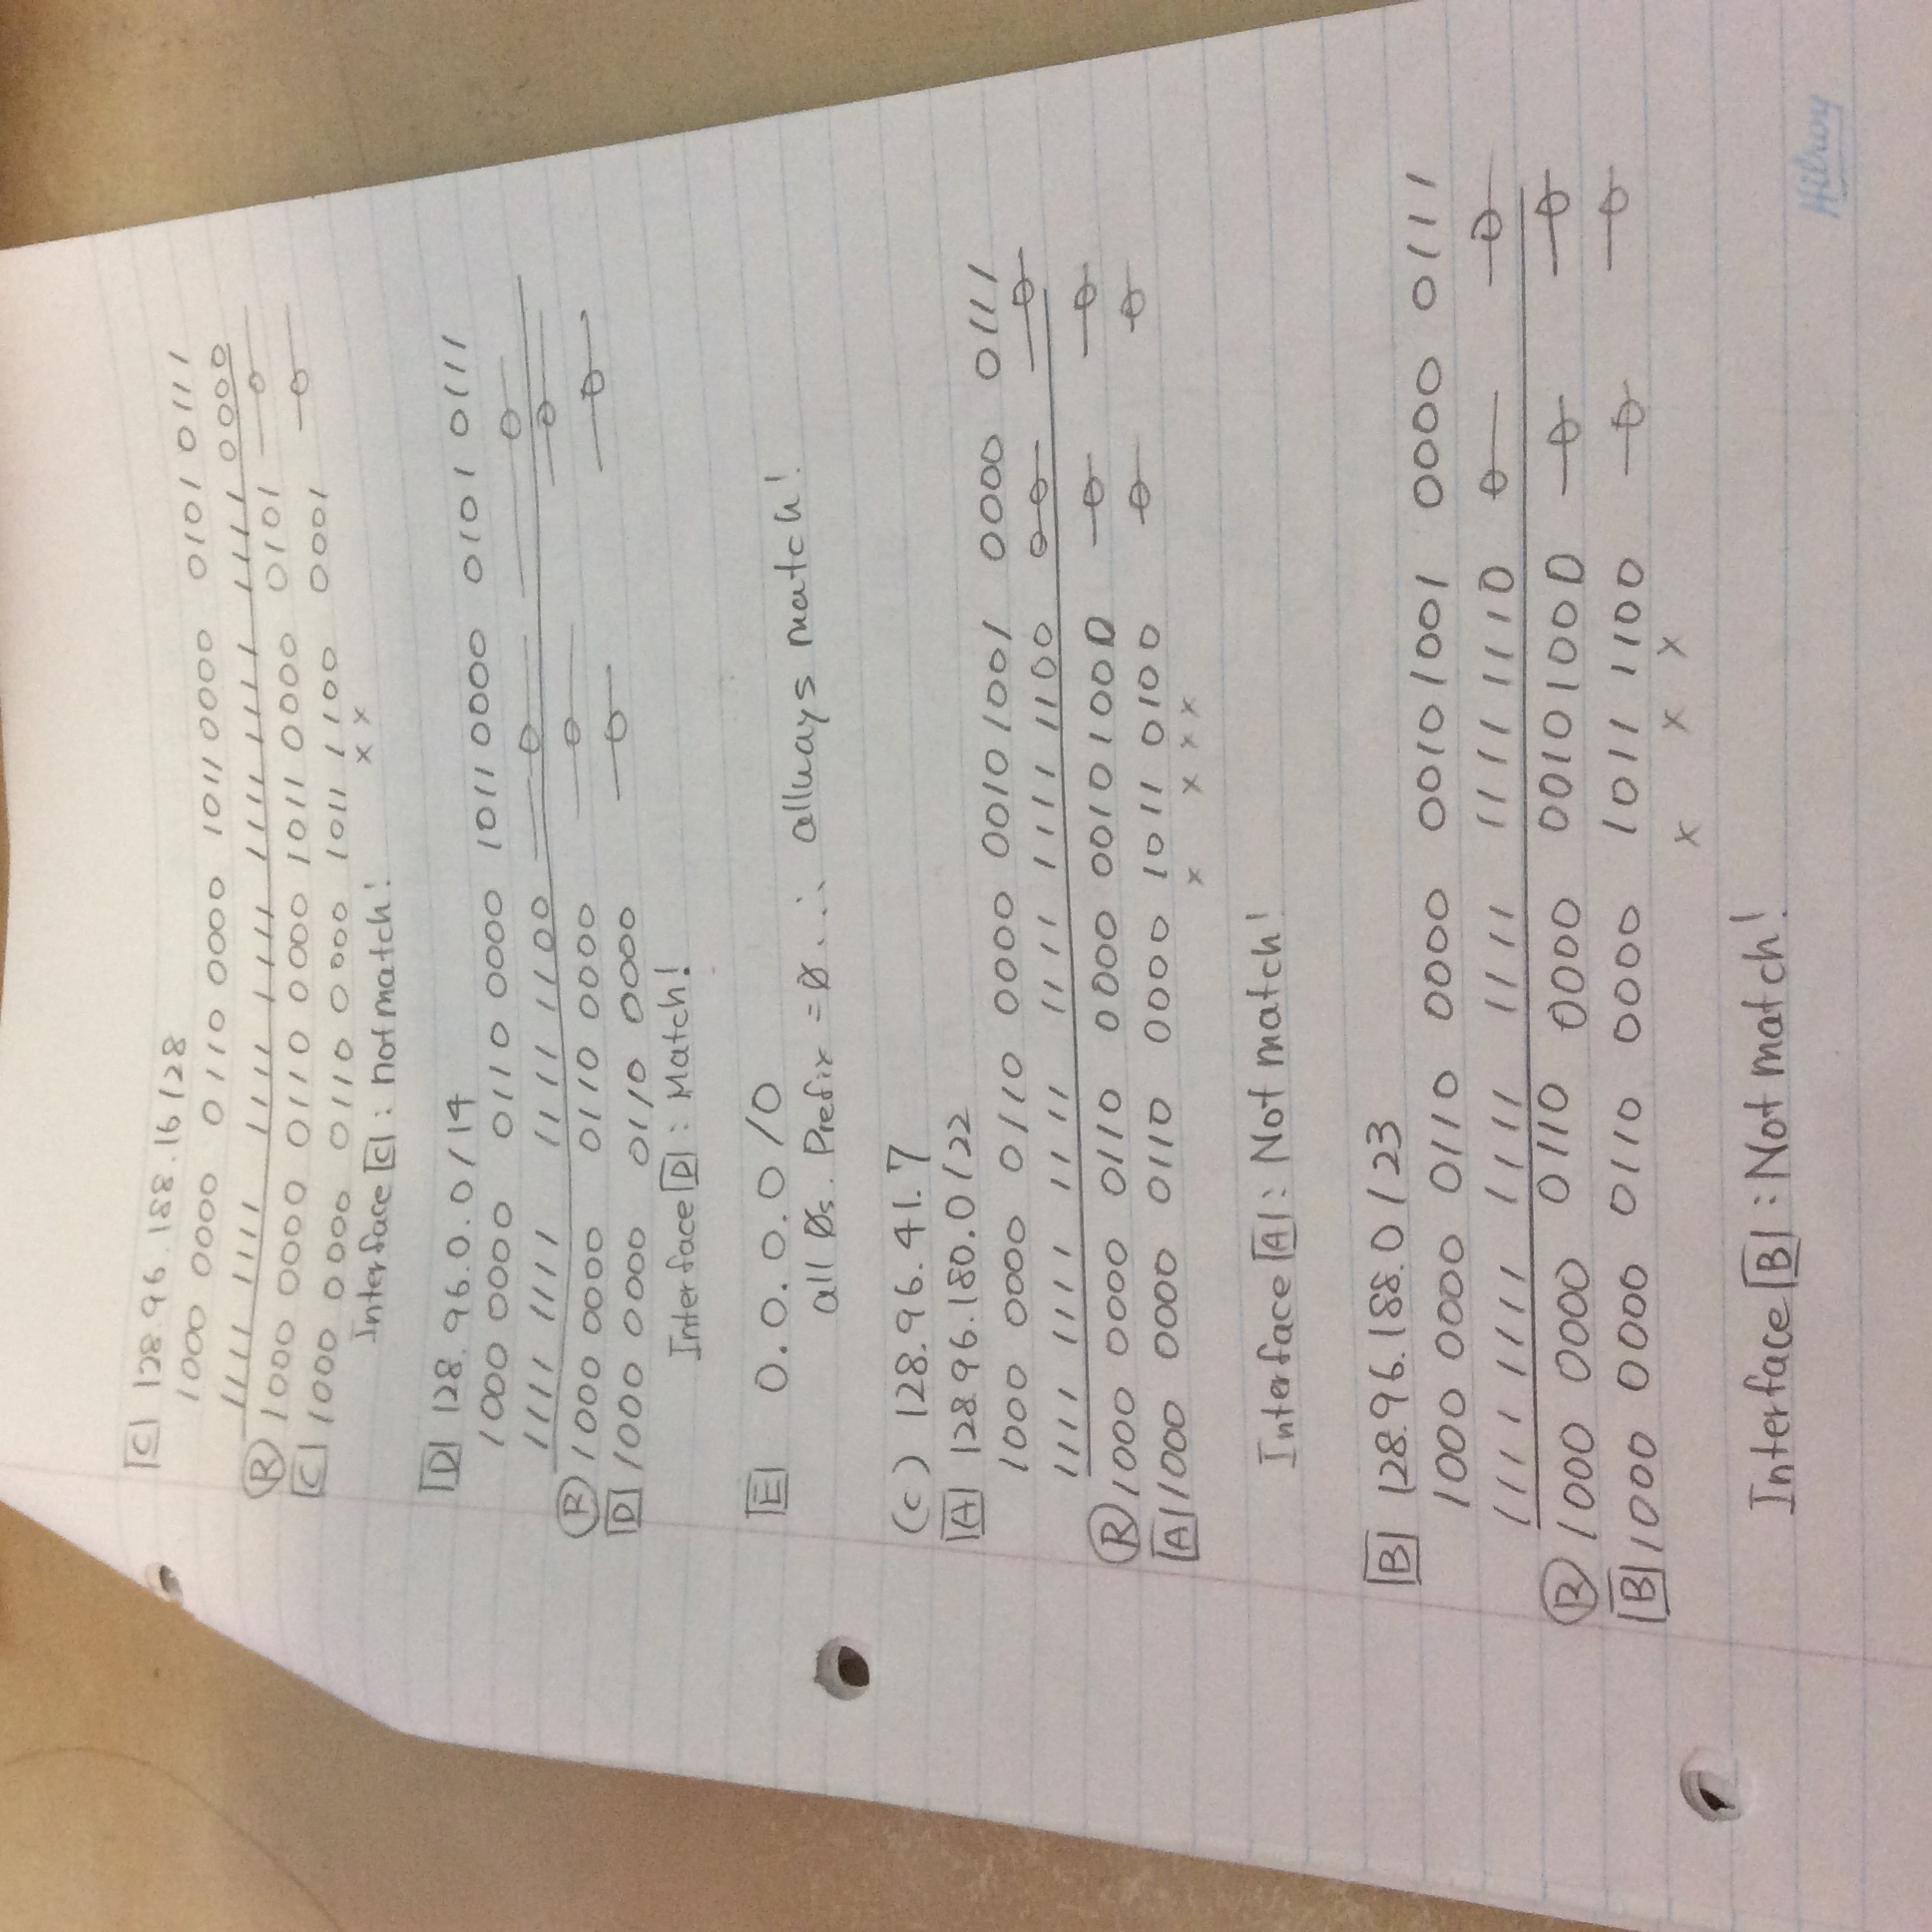 [C] 128.96.188.16/28
1000 0000 0110 0000 1011 0000 0101 0111
1111 1111 1111 1111 1111 1111 1111 0000
(R) 1000 0000 0110 0000 1011 0000 0101 0
[C] 1000 0000 0110 0000 1011 1100 0001 0
x x
Interface [C] : not match!
[D] 128.96.0.0/14
1000 0000 0110 0000 1011 0000 0101 0111
1111 1111 1111 1100 0 0
(R) 1000 0000 0110 0000 0 0
[D] 1000 0000 0110 0000 0 0
Interface [D] : Match!
[E] 0.0.0.0/0
all Øs. Prefix = Ø. ∴ allways match!
(c) 128.96.41.7
[A] 128.96.180.0/22
1000 0000 0110 0000 0010 1001 0000 0111
1111 1111 1111 1111 1111 1100 00 0
(R) 1000 0000 0110 0000 0010 1000 0 0
[A] 1000 0000 0110 0000 1011 0100 0 0
x x x x
Interface [A] : Not match!
[B] 128.96.188.0/23
1000 0000 0110 0000 0010 1001 0000 0111
1111 1111 1111 1111 1111 1110 0 0
(R) 1000 0000 0110 0000 0010 1000 0 0
[B] 1000 0000 0110 0000 1011 1100 0 0
x x x
Interface [B] : Not match!
Hilroy